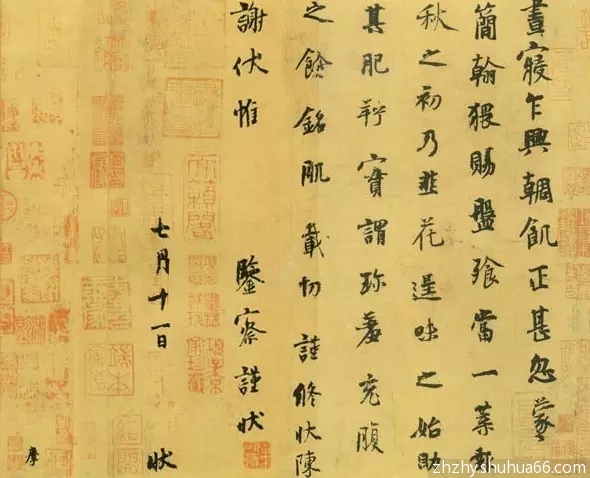 晝寢乍興輖飢正甚忽蒙
簡翰猥賜盤飧當一葉報
秋之初乃韭花逞味之始助
其肥羜實謂珍羞充腹
之餘銘肌載切謹修狀陳
謝伏惟 鑒察謹狀
七月十一日 狀
zhzhyshuhua66.com